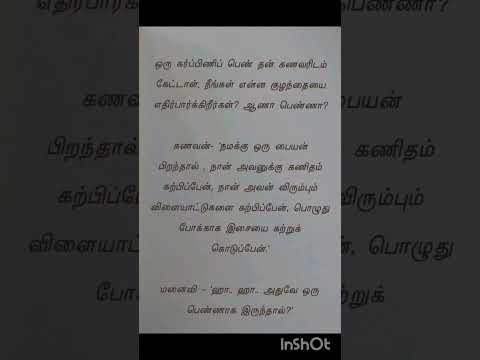 ஒரு கர்ப்பிணிப் பெண் தன் கணவரிடம்
கேட்டாள், நீங்கள் என்ன குழந்தையை
எதிர்பார்க்கிறீர்கள்? ஆணா பெண்ணா?
கணவன்- 'நமக்கு ஒரு பையன்
பிறந்தால் , நான் அவனுக்கு கணிதம்
கற்பிப்பேன், நான் அவன் விரும்பும்
விளையாட்டுகளை கற்பிப்பேன், பொழுது
போக்காக இசையை கற்றுக்
கொடுப்பேன்.'
மனைவி - 'ஹா.. ஹா.. அதுவே ஒரு
பெண்ணாக இருந்தால்?'
InShOt